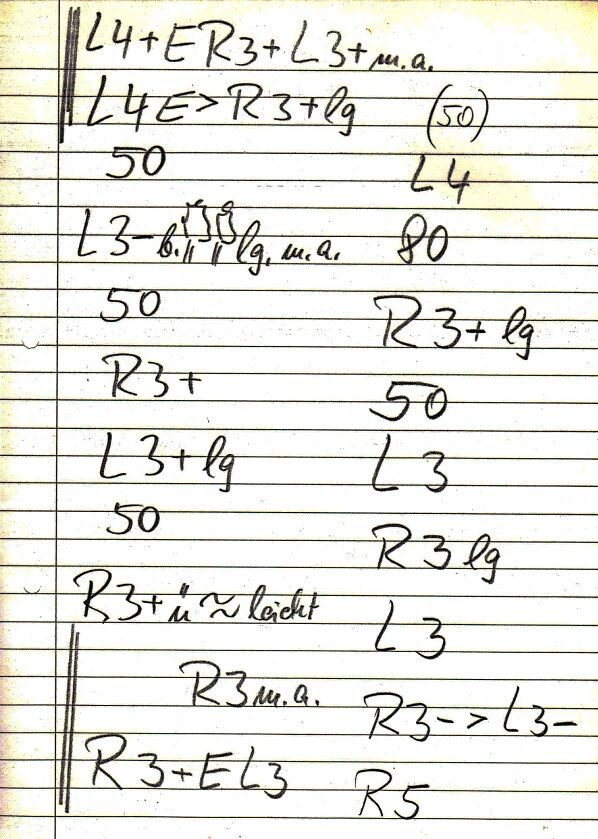 L4+ER3+L3+m.a.
L4E>R3+lg
50
L3-b. lg, m.a.
50
R3+
L3+lg
50
R3+ü≈leicht
R3m.a.
R3+EL3
(50)
L4
80
R3+lg
50
L3
R3lg
L3
R3->L3-
R5